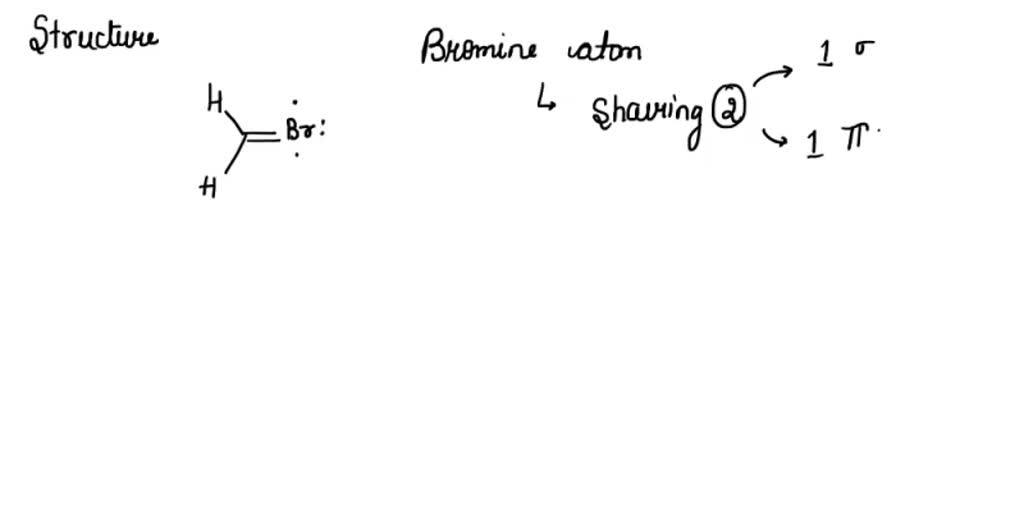 Structure
Bromine atom
↳ Sharing 2
1 σ
1 π
H
Br:
H